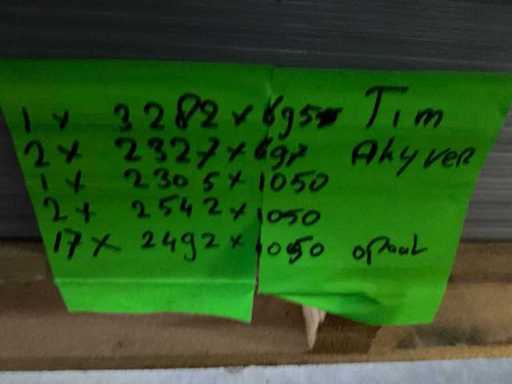 1 x 3282 x 695 Tim
2 x 2327 x 697 Akyver
1 x 2305 x 1050
2 x 2542 x 1050
17 x 2492 x 1050 opaal